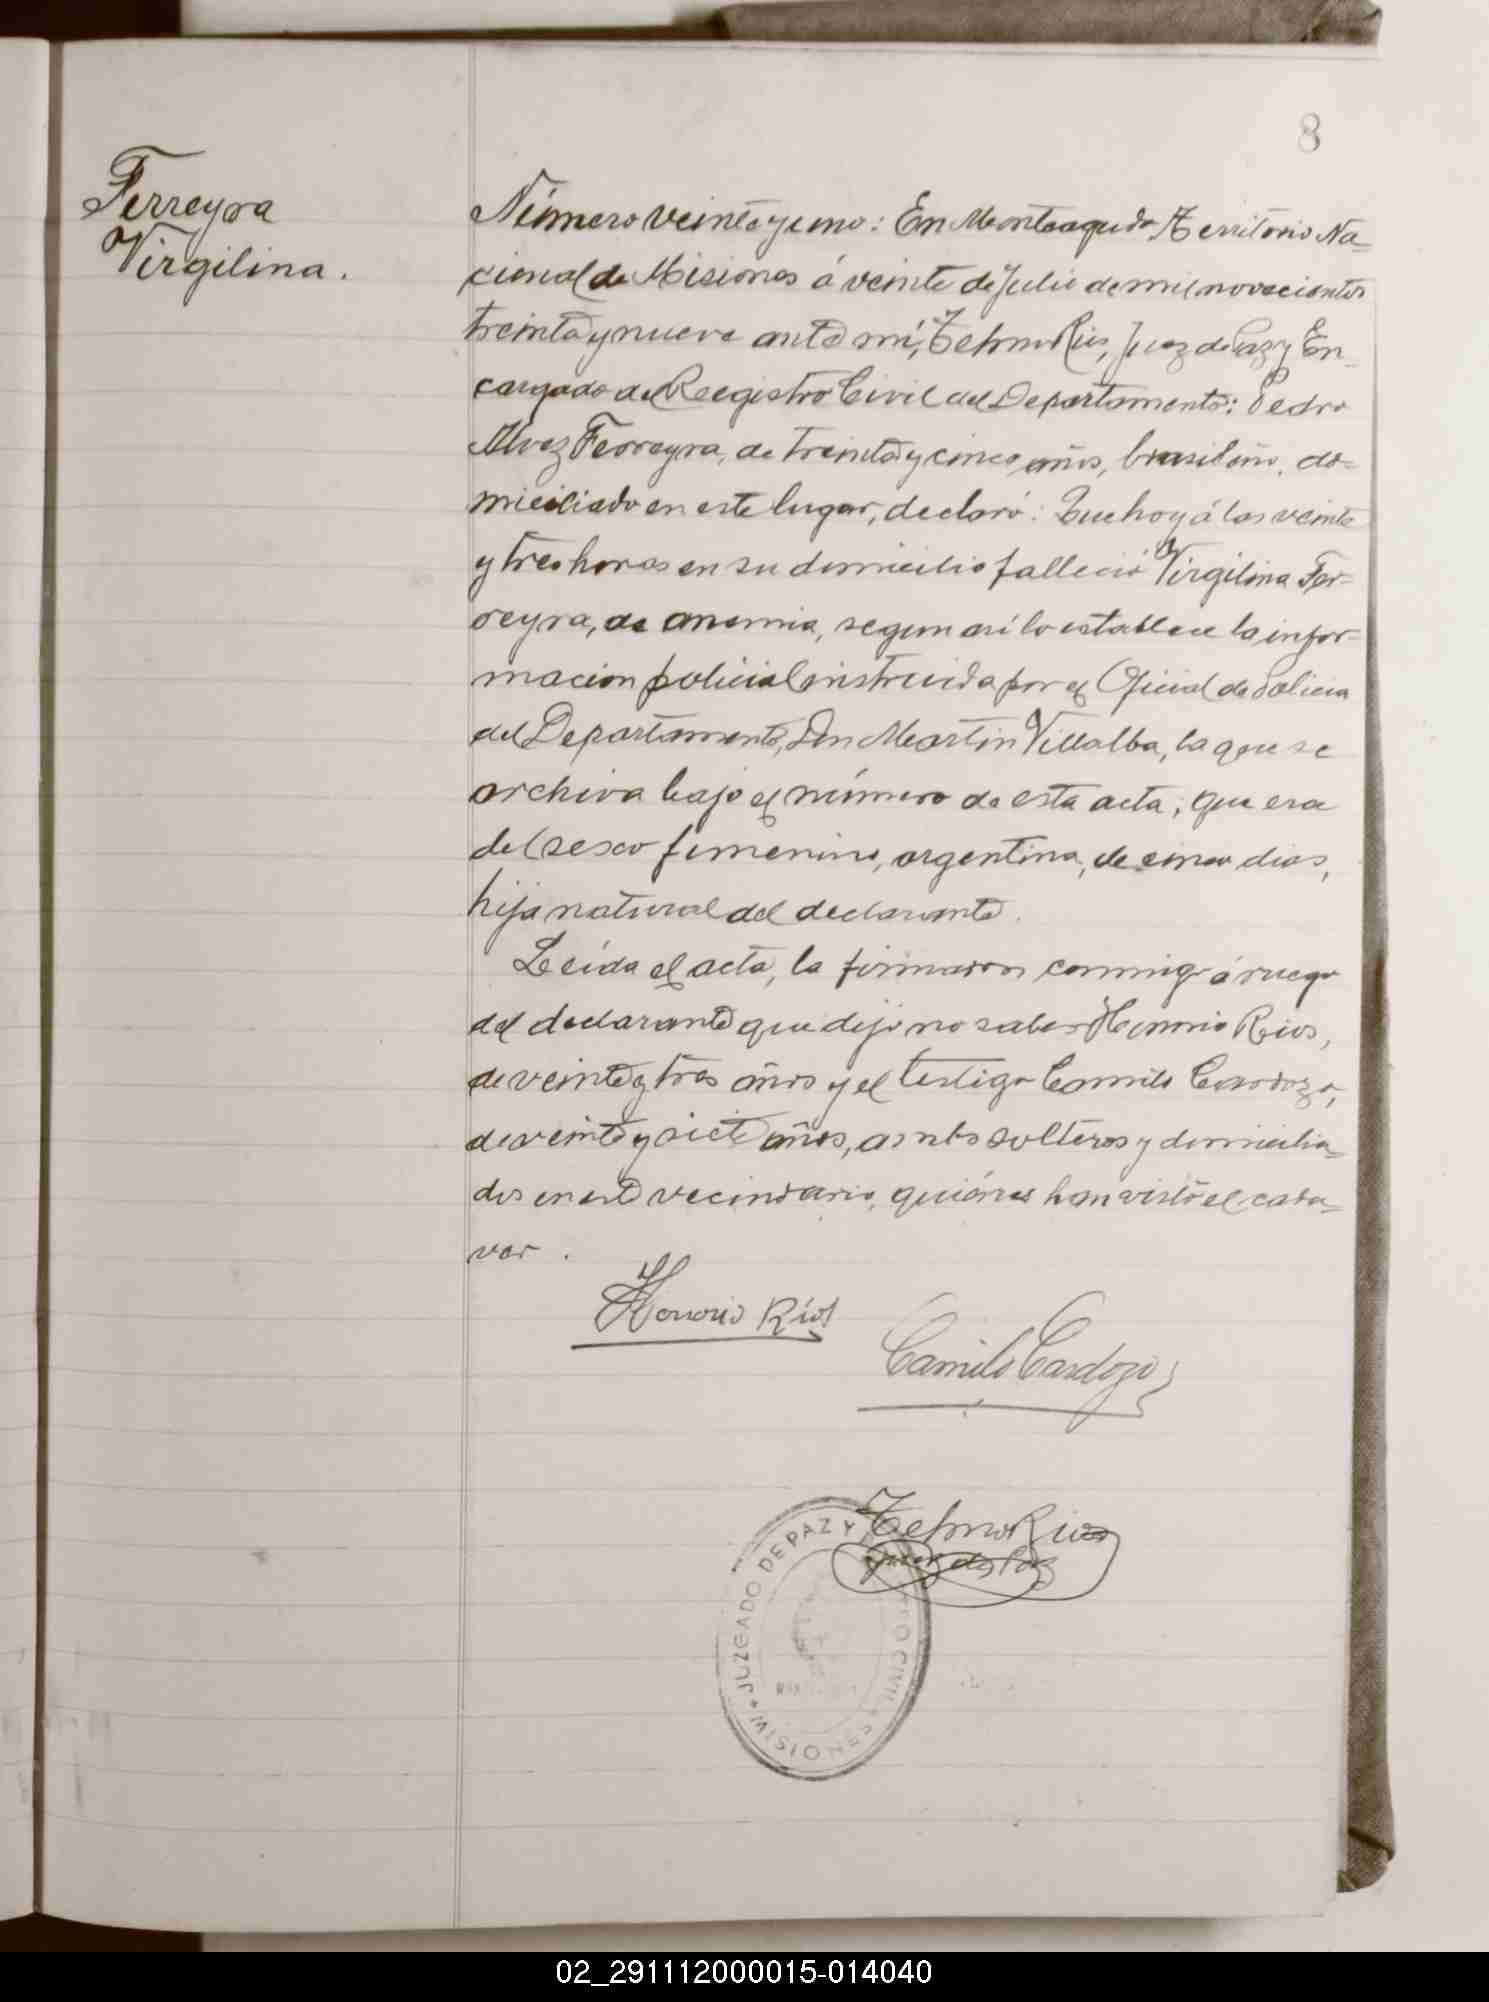 8
Ferreyra
Virgilina.
Número veinte y uno: En Monteagudo Territorio Na-
cional de Misiones á veinte de Julio de mil novecientos
treinta y nueve ante mí, Telmo Rios, Juez de Paz y En-
cargado del Reegistro Civil del Departamento: Pedro
Alvez Ferreyra, de treinta y cinco años, brasileño, do-
miciliado en este lugar, declaró: Que hoy á las veinte
y tres horas en su domicilio falleció Virgilina Fer-
reyra, de anemia, segun así lo establece la infor-
macion policial instruida por el Oficial de Policia
del Departamento, Don Martin Villalba, la que se
archiva bajo el número de esta acta; que era
del sexo femenino, argentina, de cinco dias,
hija natural del declarante.
Leída el acta, la firmaron conmigo á ruego
del declarante que dijo no saber Honorio Rios,
de veinte y tres años y el testigo Camilo Cardozo,
de veinte y siete años, ambos solteros y domicilia-
dos en este vecindario, quiénes han visto el cada-
ver.
Honorio Ríos
Camilo Cardozo
Telmo Rios
Juez de Paz
JUZGADO DE PAZ Y
CIVIL
MISIONES
02_291112000015-014040